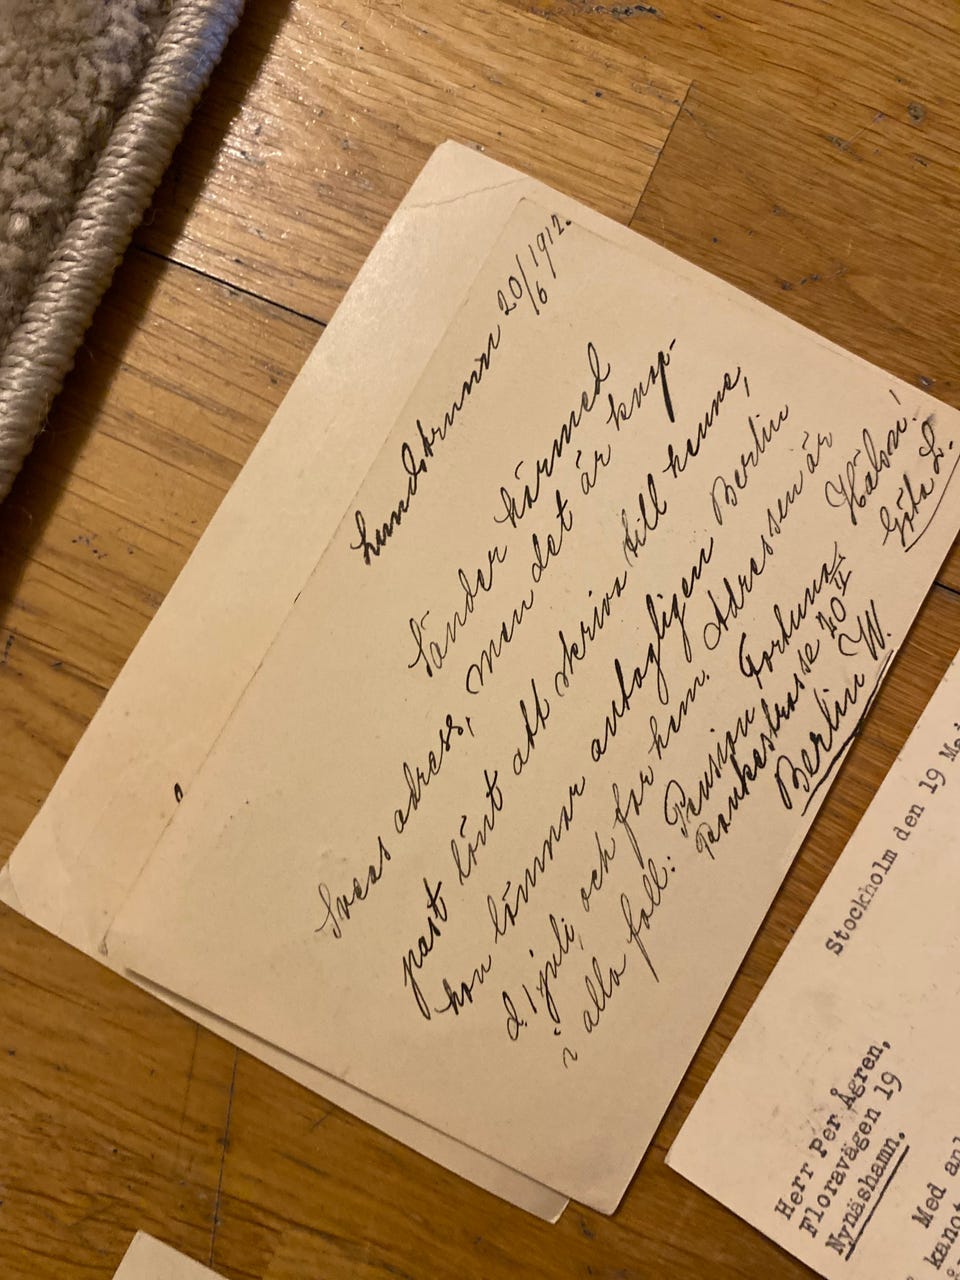 Lundsbrunn 20/6 1912.
Sänder härmed
Sveas adress, men det är knap-
past lönt att skriva till henne,
hon lämnar antagligen Berlin
d. 1 juli, och far hem. Adressen är
i alla fall: Pension Fortuna
Rankestrasse 20 II
Berlin W.
Hälsn!
Göta L.
Stockholm den 19 Maj
Herr Per Ågren,
Floravägen 19
Nynäshamn.
Med an
kanot